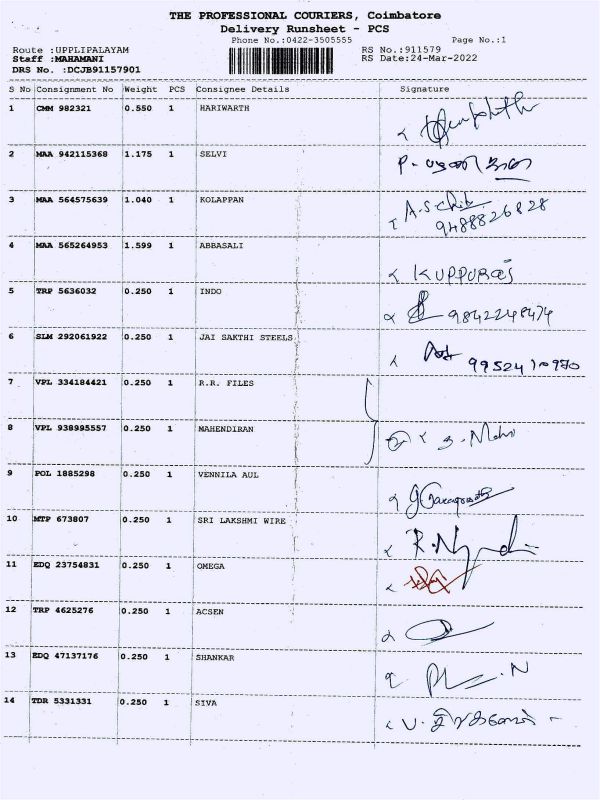 THE PROFESSIONAL COURIERS, Coimbatore
Delivery Runsheet - PCS
Phone No.:0422-3505555 Page No.:1
Route :UPPLIPALAYAM RS No.:911579
Staff :MAHAMANI RS Date:24-Mar-2022
DRS No. :DCJB91157901
S No Consignment No Weight PCS Consignee Details Signature
1 CMM 982321 0.550 1 HARIWARTH
2 MAA 942115368 1.175 1 SELVI
3 MAA 564575639 1.040 1 KOLAPPAN
9488826828
4 MAA 565264953 1.599 1 ABBASALI
KUPPURAJ
5 TRP 5636032 0.250 1 INDO
9842248474
6 SLM 292061922 0.250 1 JAI SAKTHI STEELS
9952410970
7 VPL 334184421 0.250 1 R.R. FILES
8 VPL 938995557 0.250 1 MAHENDIRAN
9 POL 1885298 0.250 1 VENNILA AUL
10 MTP 673807 0.250 1 SRI LAKSHMI WIRE
11 EDQ 23754831 0.250 1 OMEGA
12 TRP 4625276 0.250 1 ACSEN
13 EDQ 47137176 0.250 1 SHANKAR
14 TDR 5331331 0.250 1 SIVA